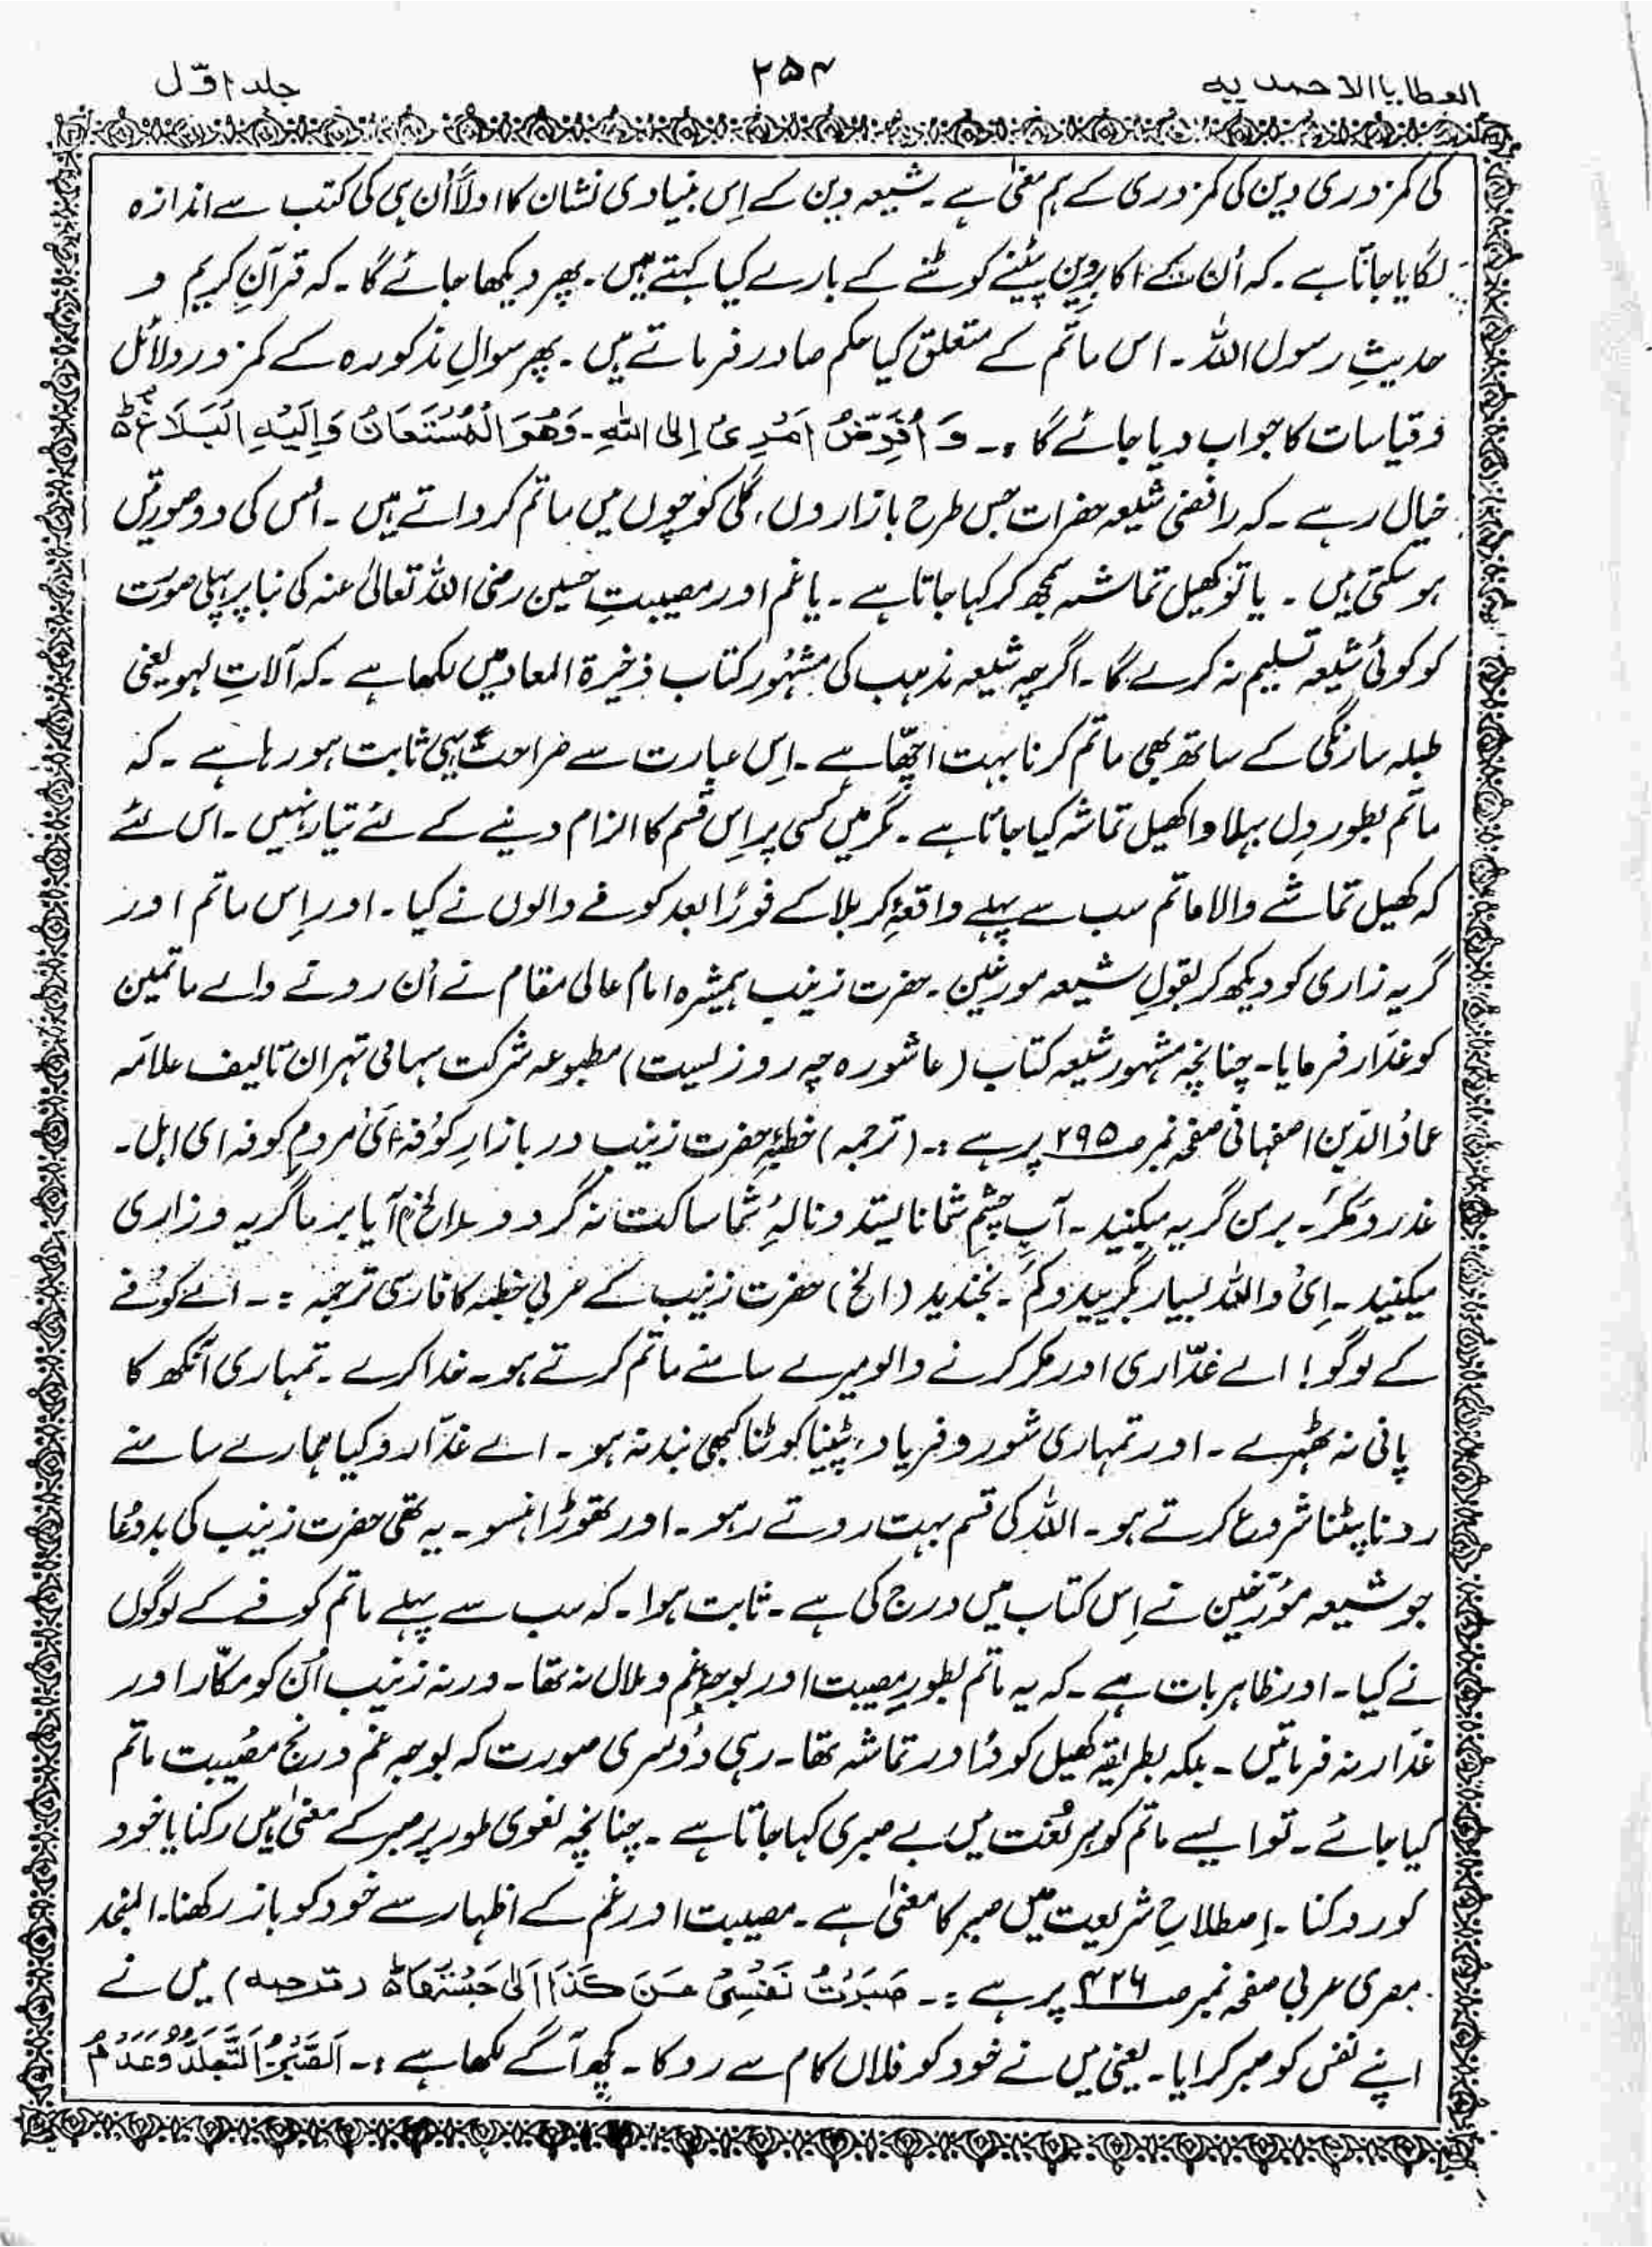 العطایا الاحمدیہ ۲۵۴ جلد اوّل
کی کمزوری دین کی کمزوری کے ہم معنیٰ ہے۔ شیعہ دین کے اِس بنیادی نشان کا اولاً اُن ہی کی کتب سے اندازہ
لگایا جاتا ہے۔ کہ اُن کے اکابرِ دین پیٹنے کوٹنے کے بارے کیا کہتے ہیں۔ پھر دیکھا جائے گا۔ کہ قرآنِ کریم و
حدیثِ رسول اللہ۔ اس ماتم کے متعلق کیا حکم صادر فرماتے ہیں۔ پھر سوالِ مذکورہ کے کمزور دلائل
و قیاسات کا جواب دیا جائے گا :۔ وَ اُفَوِّضُ اَمْرِیْ اِلَی اللہِ۔ وَھُوَ الْمُسْتَعَانُ وَاِلَیْہِ الْبَلَاغُ ہ
خیال رہے۔ کہ رافضی شیعہ حضرات جس طرح بازاروں، گلی کوچوں میں ماتم کرواتے ہیں۔ اُس کی دو صورتیں
ہو سکتی ہیں۔ یا تو کھیل تماشہ سمجھ کر کہا جاتا ہے۔ یا غم اور مصیبتِ حسین رضی اللہ تعالیٰ عنہ کی بنا پر پہلی صورت
کو کوئی شیعہ تسلیم نہ کرے گا۔ اگرچہ شیعہ مذہب کی مشہُور کتاب ذخیرۃ المعاد میں لکھا ہے۔ کہ آلاتِ لہو یعنی
طبلہ سارنگی کے ساتھ بھی ماتم کرنا بہت اچھّا ہے۔ اِس عبارت سے صراحتًہ یہی ثابت ہو رہا ہے۔ کہ
ماتم بطور دِل بہلاوا کھیل تماشہ کیا جاتا ہے۔ مگر میں کسی پر اِس قسم کا الزام دینے کے لئے تیار نہیں۔ اس لئے
کہ کھیل تماشے والا ماتم سب سے پہلے واقعۂ کربلا کے فورًا بعد کوفے والوں نے کیا۔ اور اِس ماتم اور
گریہ زاری کو دیکھ کر بقولِ شیعہ مورخین۔ حضرت زینب ہمشیرہ امام عالی مقام نے اُن رونے والے ماتمین
کو غدّار فرمایا۔ چنانچہ مشہور شیعہ کتاب (عاشورہ چہ روز لیست) مطبوعہ شرکت سہامی تہران تالیف علامّہ
عمادُ الدّین اصفہانی صفحہ نمبر ص۲۹۵ پر ہے :۔ (ترجمہ) خطبۂ حضرت زینب در بازارِ کوُفہ اَئ مردمِ کوفہ ای اہل۔
غدر و مَکرَ۔ بر من گریہ میکنید۔ آبِ چشمِ شما نا یستد و نالہُ شما ساکت نہ گردد (الخ) آیا بر ما گریہ و زاری
میکنید۔ اِئ واللہ بسیار بگریید و کم۔ بخندید (الخ) حضرت زینب کے عربی خطبہ کا فارسی ترجمہ :۔ اے کُوفے
کے لوگو! اے غدّاری اور مکر کرنے والو میرے سامنے ماتم کرتے ہو۔ خدا کرے۔ تمہاری آنکھ کا
پانی نہ ٹھہرے۔ اور تمہاری شور و فریاد، پٹینا کوٹنا کبھی بند نہ ہو۔ اے غدّارو کیا ہمارے سامنے
رونا پیٹنا شروع کرتے ہو۔ اللہ کی قسم بہت روتے رہو۔ اور تھوڑا ہنسو۔ یہ تھی حضرت زینب کی بددُعا
جو شیعہ مؤرّخین نے اِس کتاب میں درج کی ہے۔ ثابت ہوا۔ کہ سب سے پہلے ماتم کوفے کے لوگوں
نے کیا۔ اور ظاہر بات ہے۔ کہ یہ ماتم بطورِ مصیبت اور بوجہِ غم و ملال نہ تھا۔ ورنہ زینب اُن کو مکّار اور
غدّار نہ فرماتیں۔ بلکہ بطریقہ کھیل کود اور تماشہ تھا۔ رہی دوُسری صورت کہ بوجہ غم و رنج مصُیبت ماتم
کیا جائے۔ تو ایسے ماتم کو ہر لُغت میں بے صبری کہا جاتا ہے۔ چنانچہ لغوی طور پر صبر کے معنیٰ ہیں رکنا یا خود
کو روکنا۔ اِصطلاحِ شریعت میں صبر کا معنیٰ ہے۔ مصیبت اور غم کے اظہار سے خود کو باز رکھنا۔ المنجد
مصری عربی صفحہ نمبر ص۴۲۶ پر ہے :۔ صَبَرْتُ نَفْسِیْ عَنْ کَذَا اَیْ حَبَسْتُھَا ہ (ترجمہ) میں نے
اپنے نفس کو صبر کرایا۔ یعنی میں نے خود کو فلاں کام سے روکا۔ کچھ آگے لکھا ہے :۔ اَلصَّبْرُ اَلتَّجَلُّدُ وَعَدَمُ